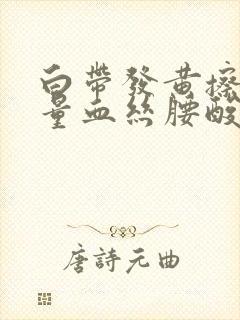 白帶發黄擦
量血絲腰酸
唐詩元曲